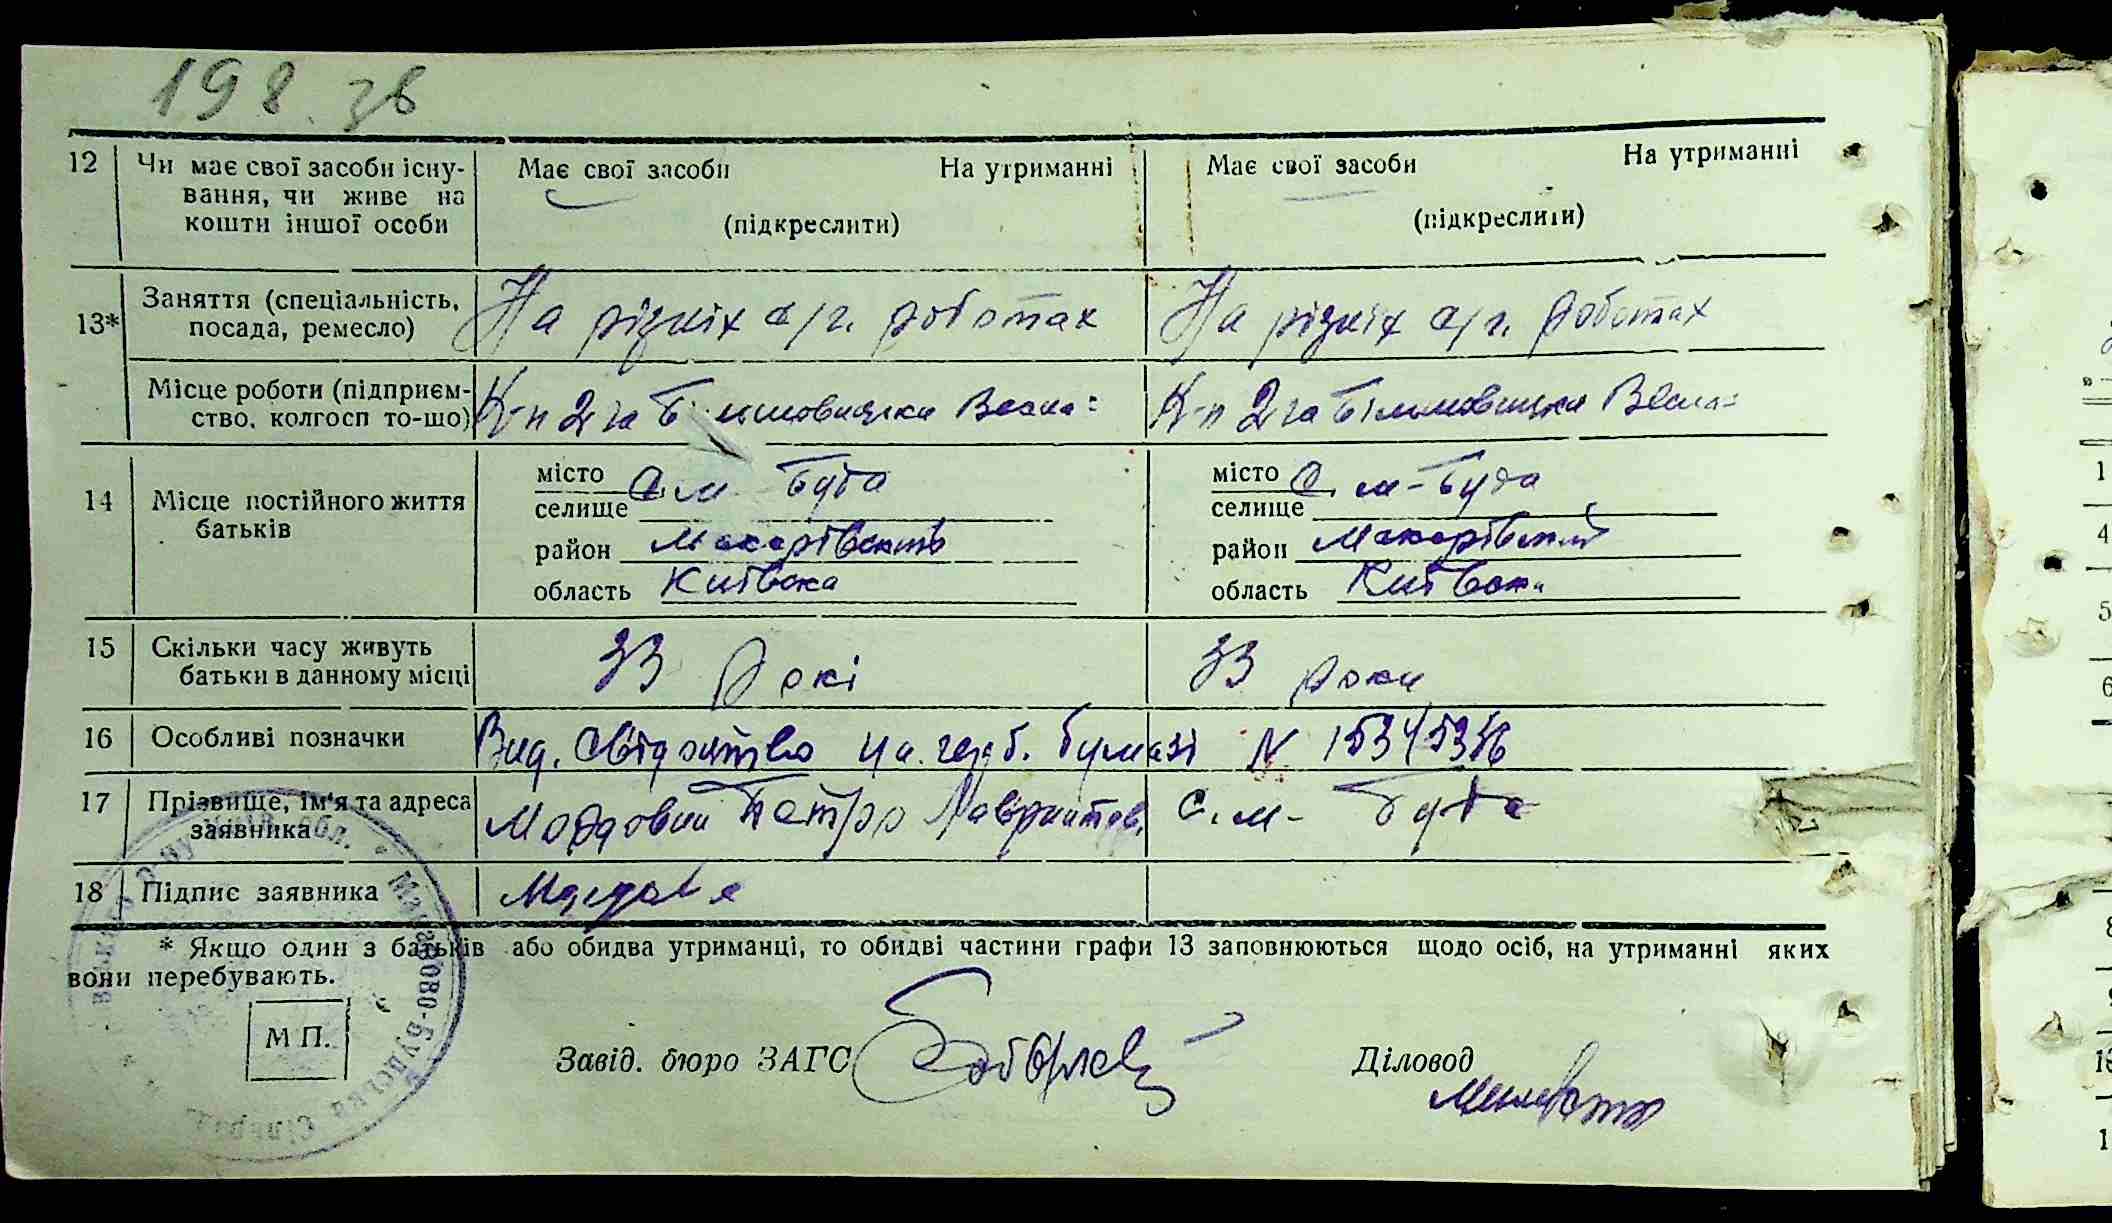 198 зв
12 Чи має свої засоби існу- Має свої засоби На утриманні Має свої засоби На утриманні
вання, чи живе на
кошти іншої особи (підкреслити) (підкреслити)
13* Заняття (спеціальність, На різніх с/г. роботах На різніх с/г. роботах
посада, ремесло)
Місце роботи (підприєм- К-п 2га Весна: К-п 2га Весна:
ство, колгосп то-що)
14 Місце постійного життя місто С. м-Буда місто С. м-Буда
батьків селище селище
район Макарівський район Макарівський
область Київська область Київська
15 Скільки часу живуть 33 рокі 33 роки
батьки в данному місці
16 Особливі позначки Вид. свідоцтво на герб. бумазі N
17 Прізвище, ім'я та адреса Петро С. м- Буда
заявника
18 Підпис заявника
* Якщо один з батьків або обидва утриманці, то обидві частини графи 13 заповнюються щодо осіб, на утриманні яких
вони перебувають.
М П.
Завід. бюро ЗАГС Діловод